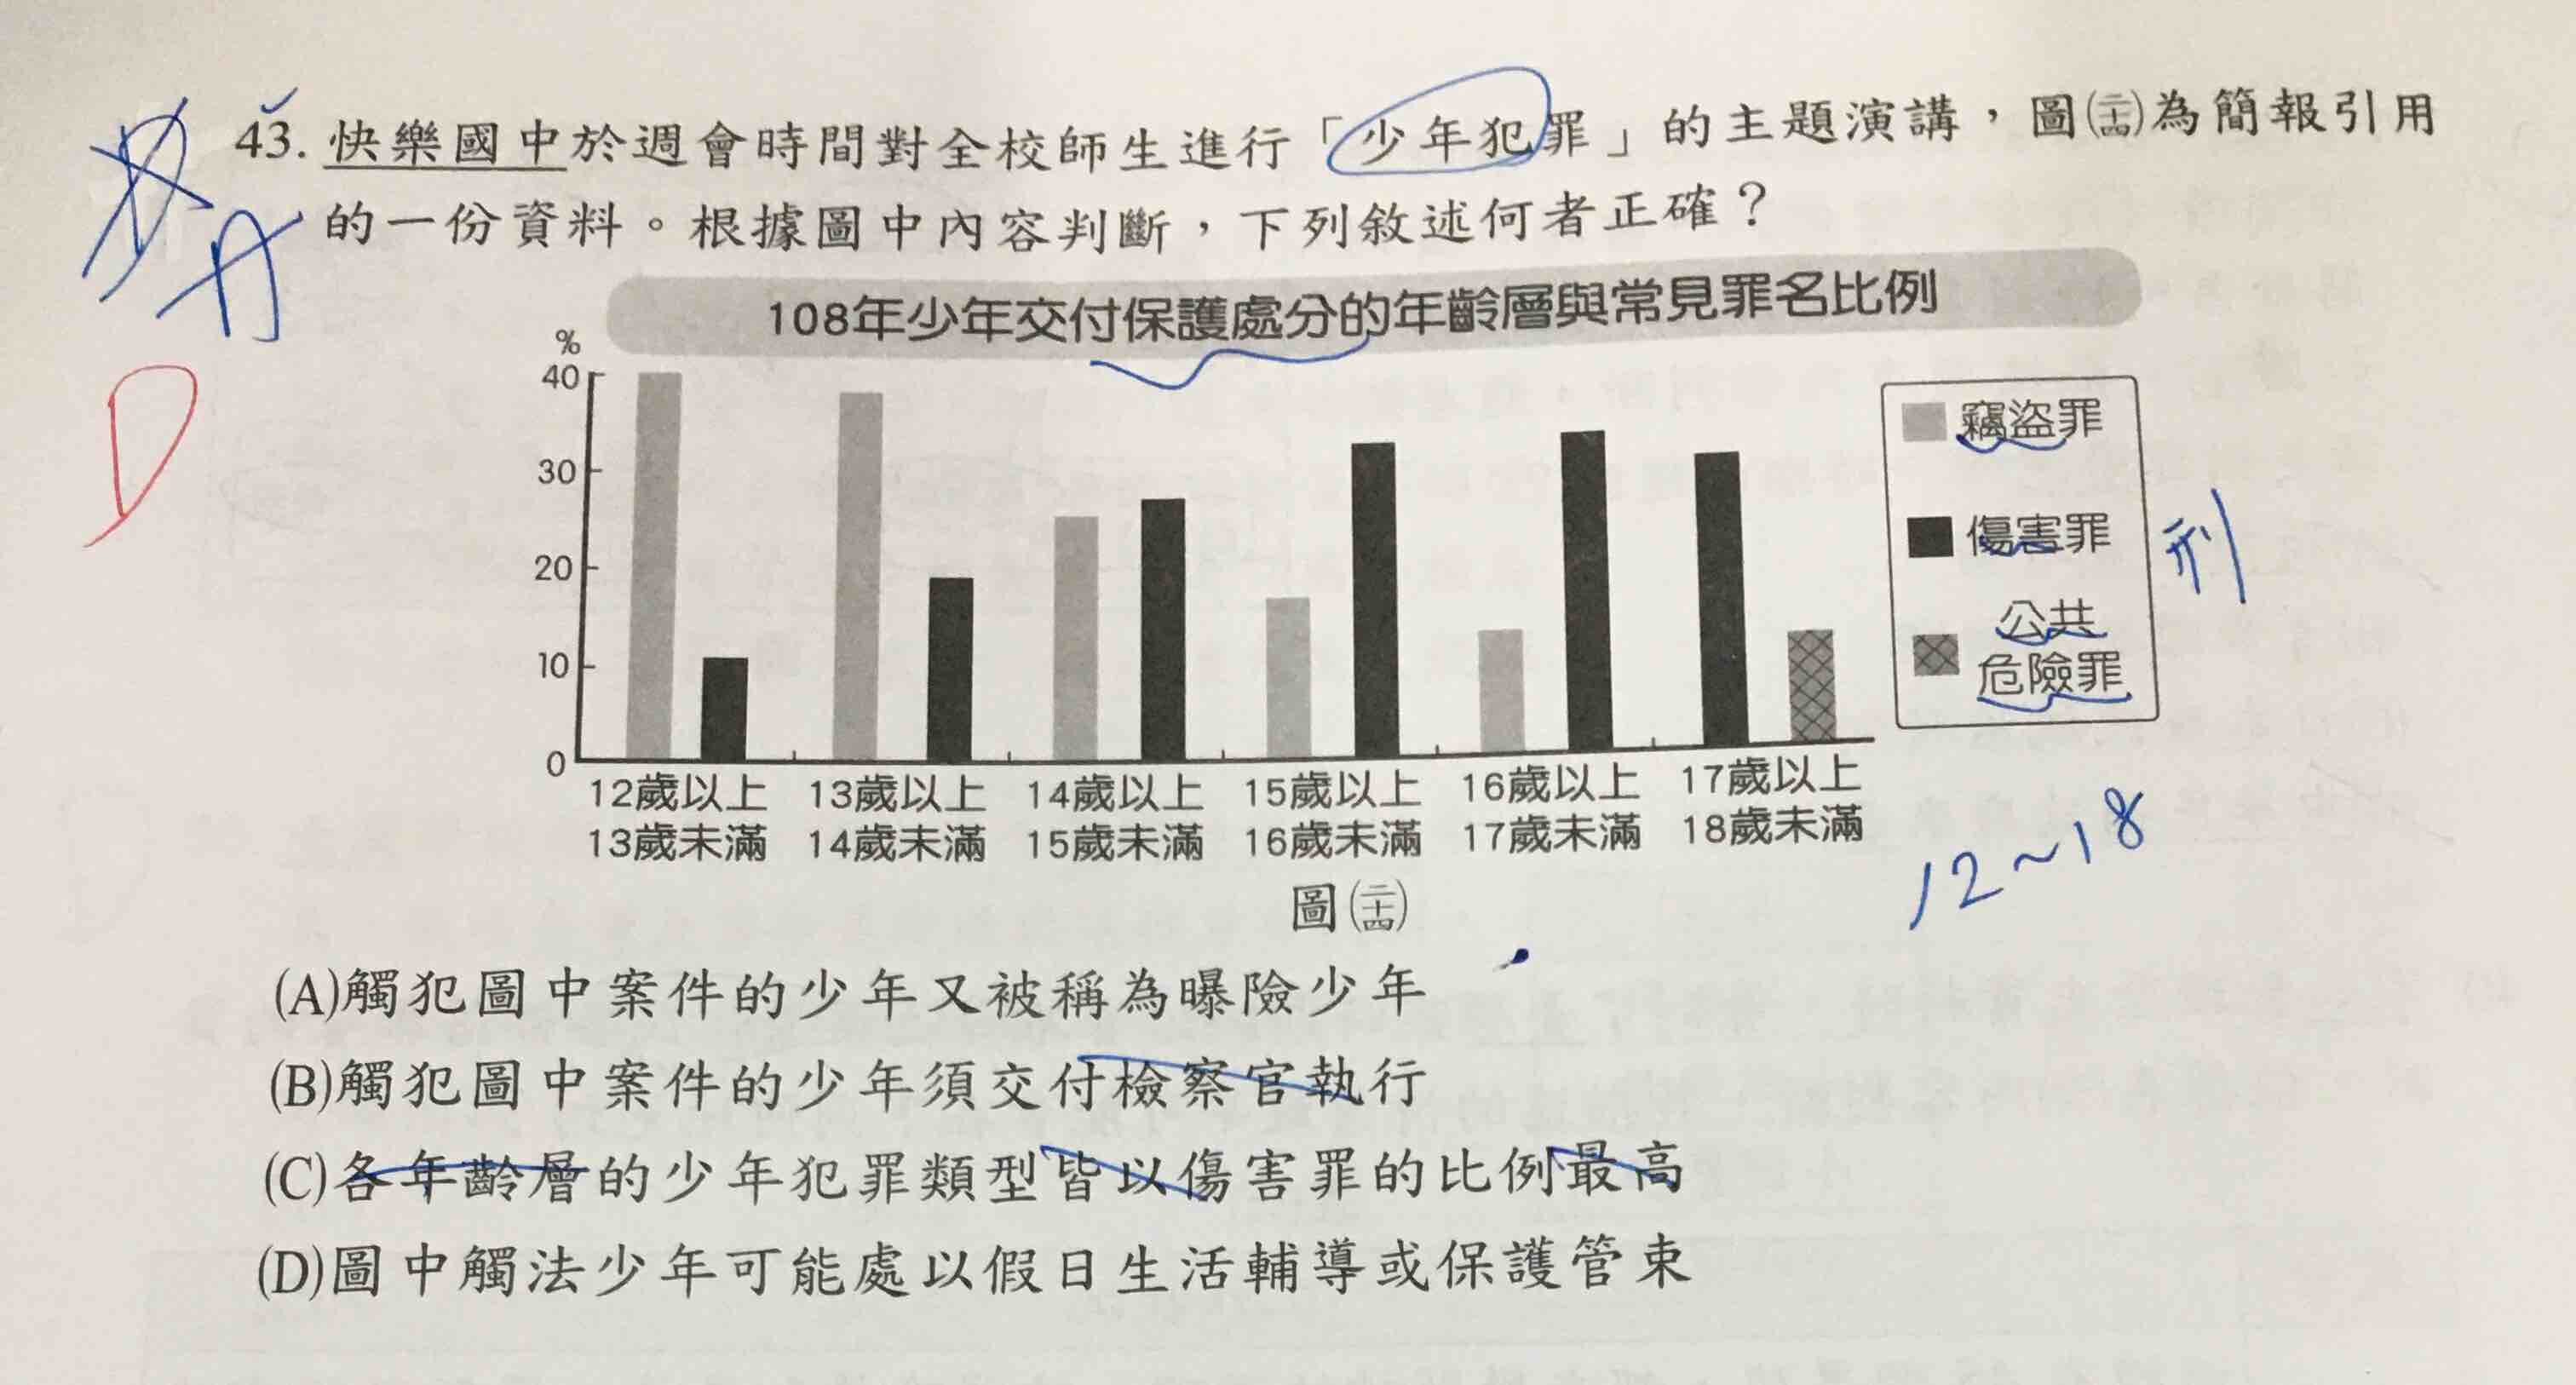 43. 快樂國中於週會時間對全校師生進行「少年犯罪」的主題演講，圖(二十四)為簡報引用
的一份資料。根據圖中內容判斷，下列敘述何者正確？
D
108年少年交付保護處分的年齡層與常見罪名比例
%
40
30
20
10
0
竊盜罪
傷害罪
公共
危險罪
刑
12歲以上 13歲以上 14歲以上 15歲以上 16歲以上 17歲以上
13歲未滿 14歲未滿 15歲未滿 16歲未滿 17歲未滿 18歲未滿
12~18
圖(二十四)
(A)觸犯圖中案件的少年又被稱為曝險少年
(B)觸犯圖中案件的少年須交付檢察官執行
(C)各年齡層的少年犯罪類型皆以傷害罪的比例最高
(D)圖中觸法少年可能處以假日生活輔導或保護管束